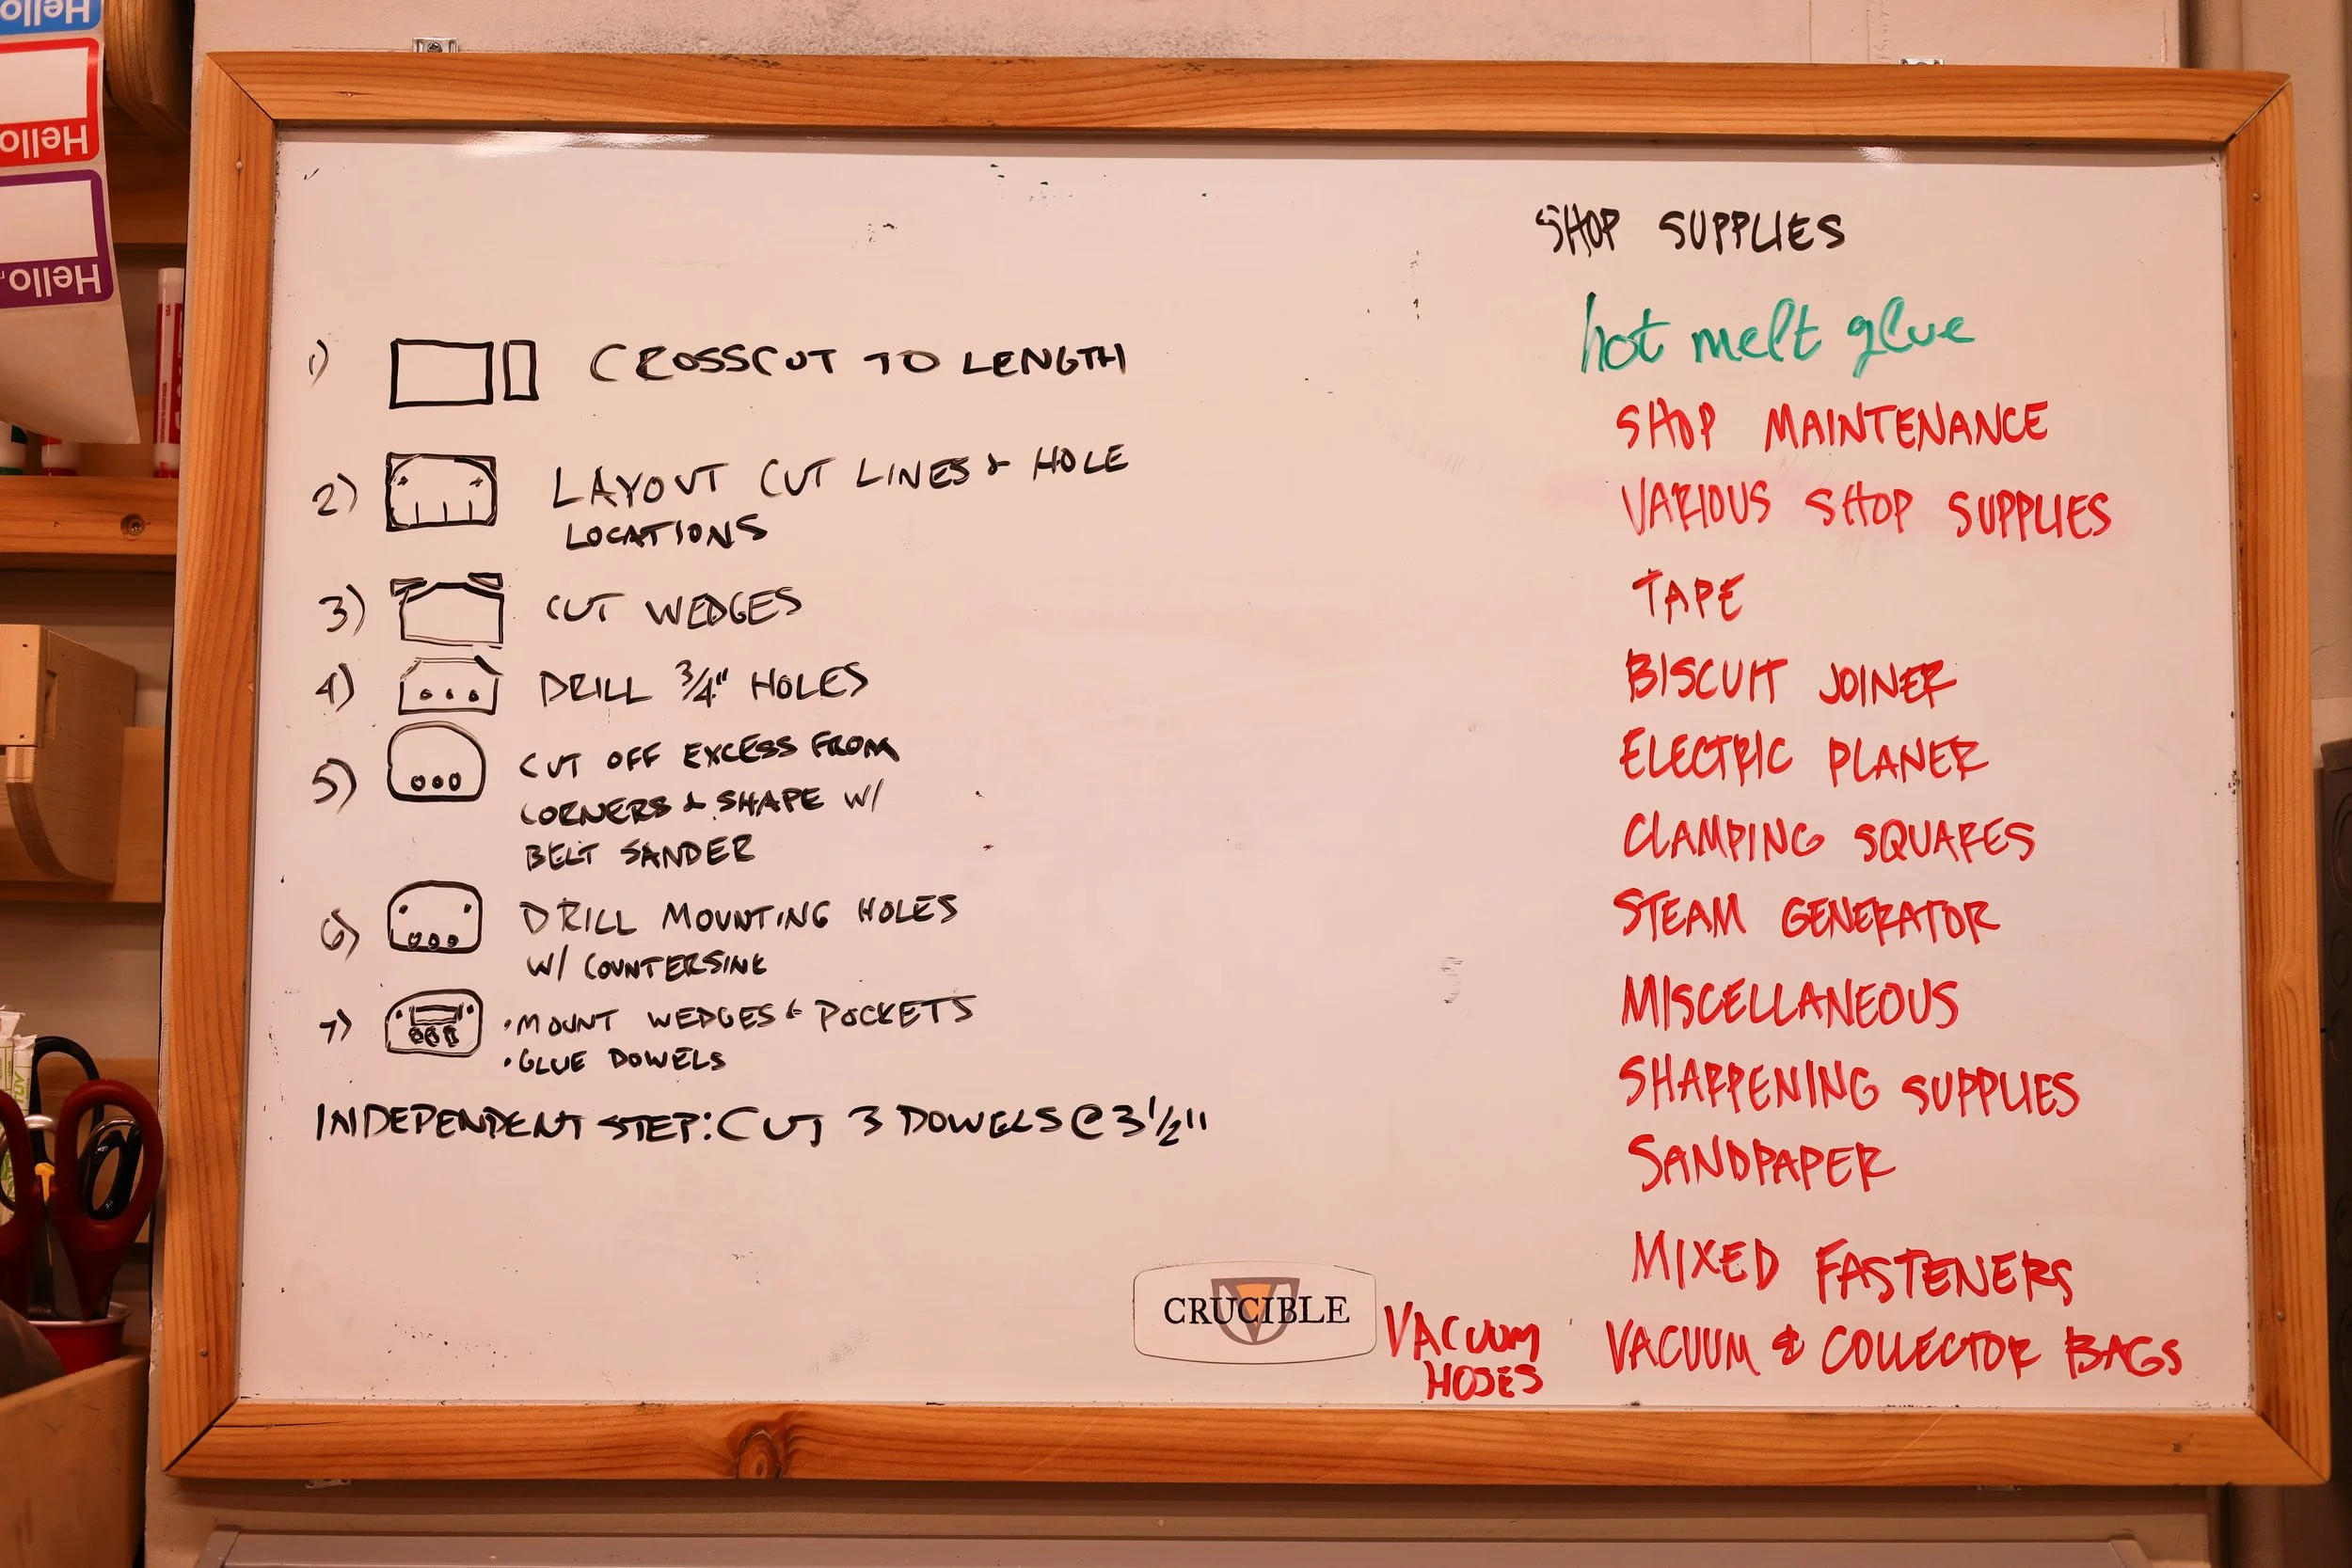 Hello
Hello
Hello,
1) CROSSCUT TO LENGTH
2) LAYOUT CUT LINES & HOLE
LOCATIONS
3) CUT WEDGES
4) DRILL 3/4" HOLES
5) CUT OFF EXCESS FROM
CORNERS & SHAPE W/
BELT SANDER
6) DRILL MOUNTING HOLES
W/ COUNTERSINK
7) • MOUNT WEDGES & POCKETS
• GLUE DOWELS
INDEPENDENT STEP: CUT 3 DOWELS @ 3 1/2"
SHOP SUPPLIES
hot melt glue
SHOP MAINTENANCE
VARIOUS SHOP SUPPLIES
TAPE
BISCUIT JOINER
ELECTRIC PLANER
CLAMPING SQUARES
STEAM GENERATOR
MISCELLANEOUS
SHARPENING SUPPLIES
SANDPAPER
MIXED FASTENERS
VACUUM & COLLECTOR BAGS
VACUUM
HOSES
CRUCIBLE